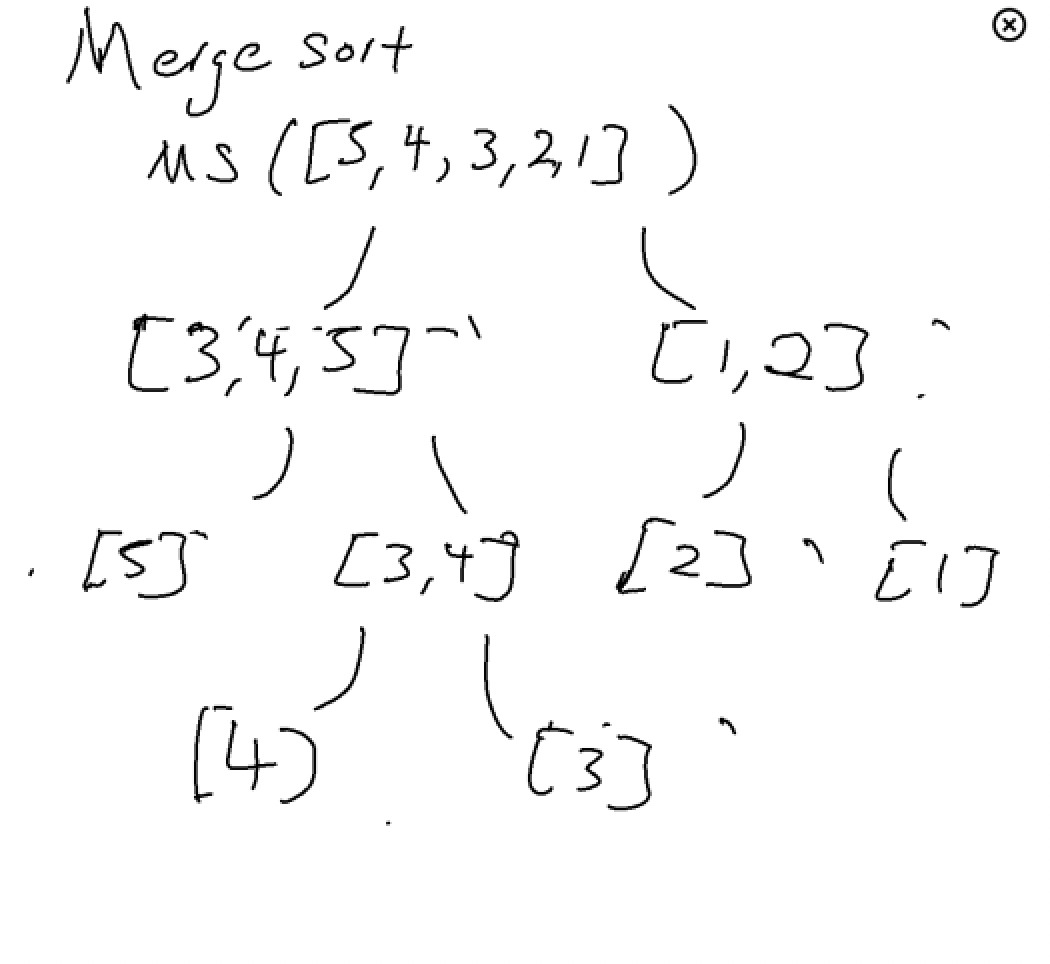 Merge sort
MS ([5,4,3,2,1])
[3,4,5] [1,2]
[5] [3,4] [2] [1]
[4) [3]